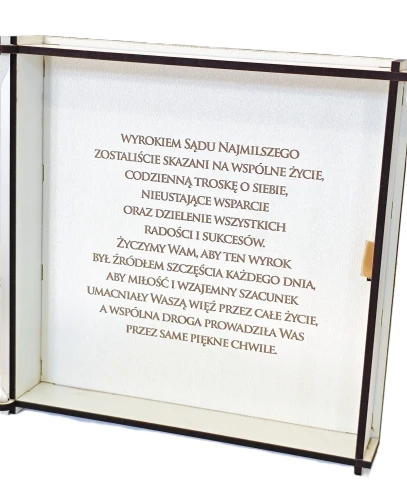 WYROKIEM SĄDU NAJMILSZEGO
ZOSTALIŚCIE SKAZANI NA WSPÓLNE ŻYCIE,
CODZIENNĄ TROSKĘ O SIEBIE,
NIEUSTAJĄCE WSPARCIE
ORAZ DZIELENIE WSZYSTKICH
RADOŚCI I SUKCESÓW.
ŻYCZYMY WAM, ABY TEN WYROK
BYŁ ŹRÓDŁEM SZCZĘŚCIA KAŻDEGO DNIA,
ABY MIŁOŚĆ I WZAJEMNY SZACUNEK
UMACNIAŁY WASZĄ WIĘŹ PRZEZ CAŁE ŻYCIE,
A WSPÓLNA DROGA PROWADZIŁA WAS
PRZEZ SAME PIĘKNE CHWILE.